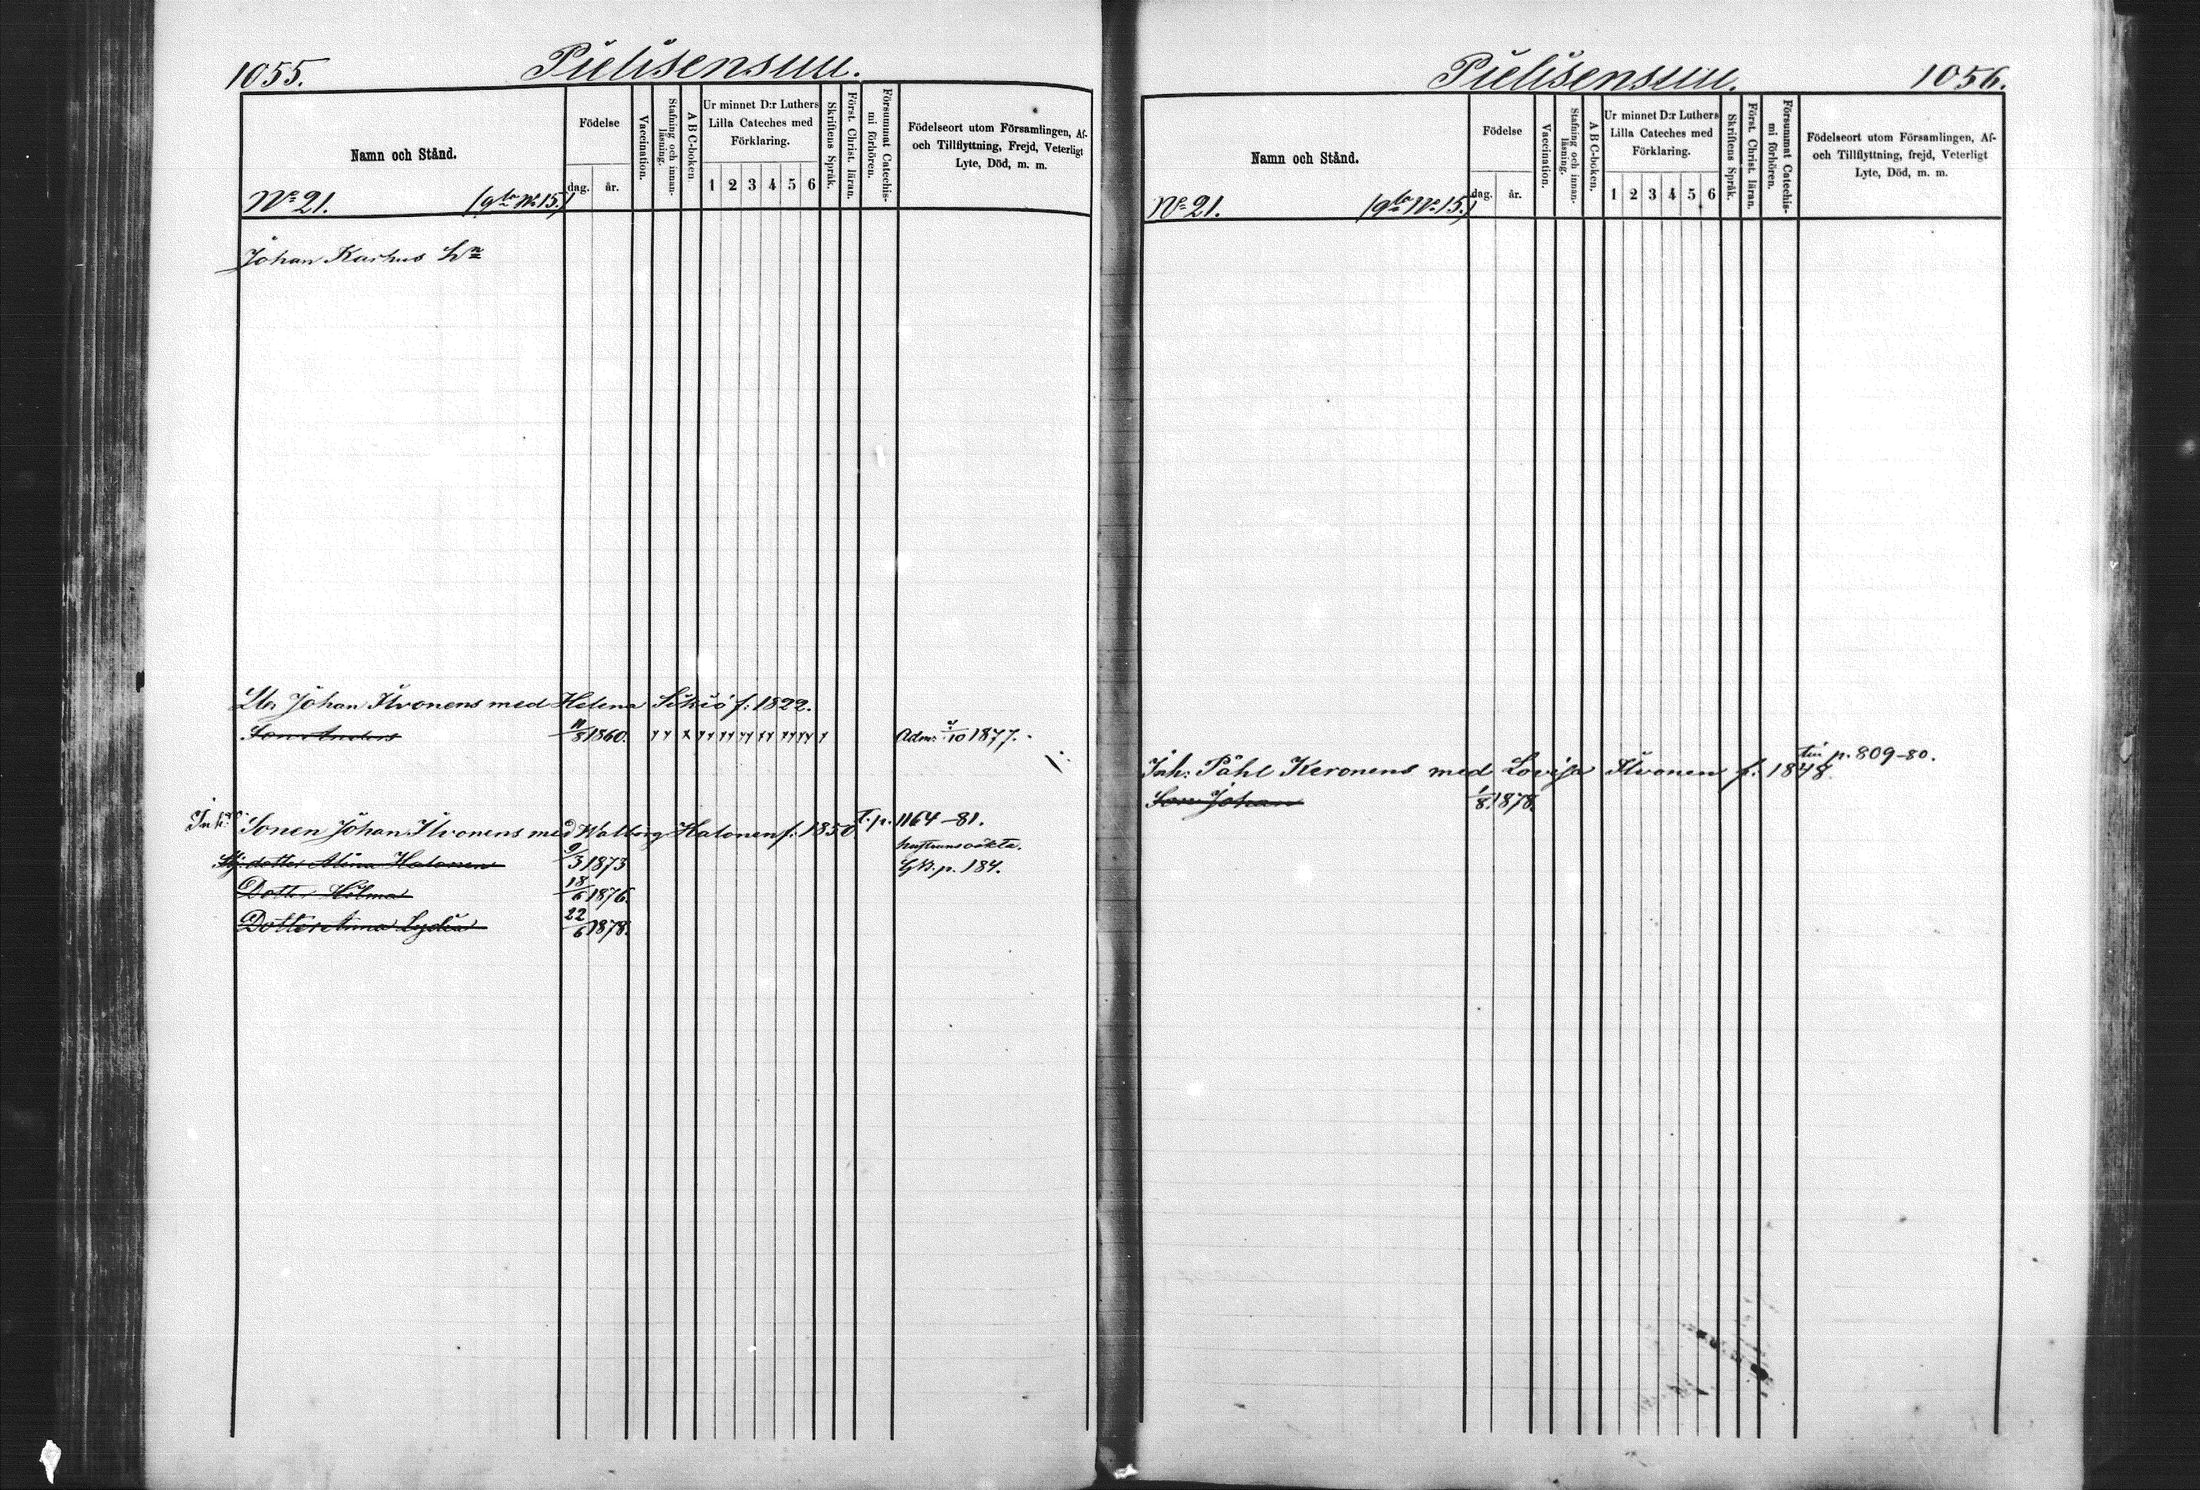 1055.
Pielisensuu.
Namn och Stånd.
Födelse
dag.
år.
Vaccination.
Stafning och innan-
läsning.
A B C-boken.
Ur minnet D:r Luthers
Lilla Cateches med
Förklaring.
1 2 3 4 5 6
Skriftens Språk.
Först. Christ. läran.
Försummat Catechis-
mi förhören.
Födelseort utom Församlingen, Af-
och Tillflyttning, Frejd, Veterligt
Lyte, Död, m. m.
No 21. (g:la No 15.)
Johan Karhus
Johan Ilvonens med Helena f: 1822.
Son Anders 11/8 1860. Adm: /10 1877.
Sonen Johan Ilvonens med Walborg Halonen f: 1850 T. p. 1164–81.
dotter Alina Halonen 9/3 1873 hustruns oäkta.
Dotter Hilma 18/6 1876. p. 184.
Dotter Anna Lydia 22/6 1878.
Pielisensuu.
1056.
Namn och Stånd.
Födelse
dag.
år.
Vaccination.
Stafning och innan-
läsning.
A B C-boken.
Ur minnet D:r Luthers
Lilla Cateches med
Förklaring.
1 2 3 4 5 6
Skriftens Språk.
Först. Christ. läran.
Försummat Catechis-
mi förhören.
Födelseort utom Församlingen, Af-
och Tillflyttning, frejd, Veterligt
Lyte, Död, m. m.
No 21. (g:la No 15.)
Inh: Påhl Keronens med Lovisa Ilvonen f: 1848. p. 809–80.
Son Johan 1/8 1878.